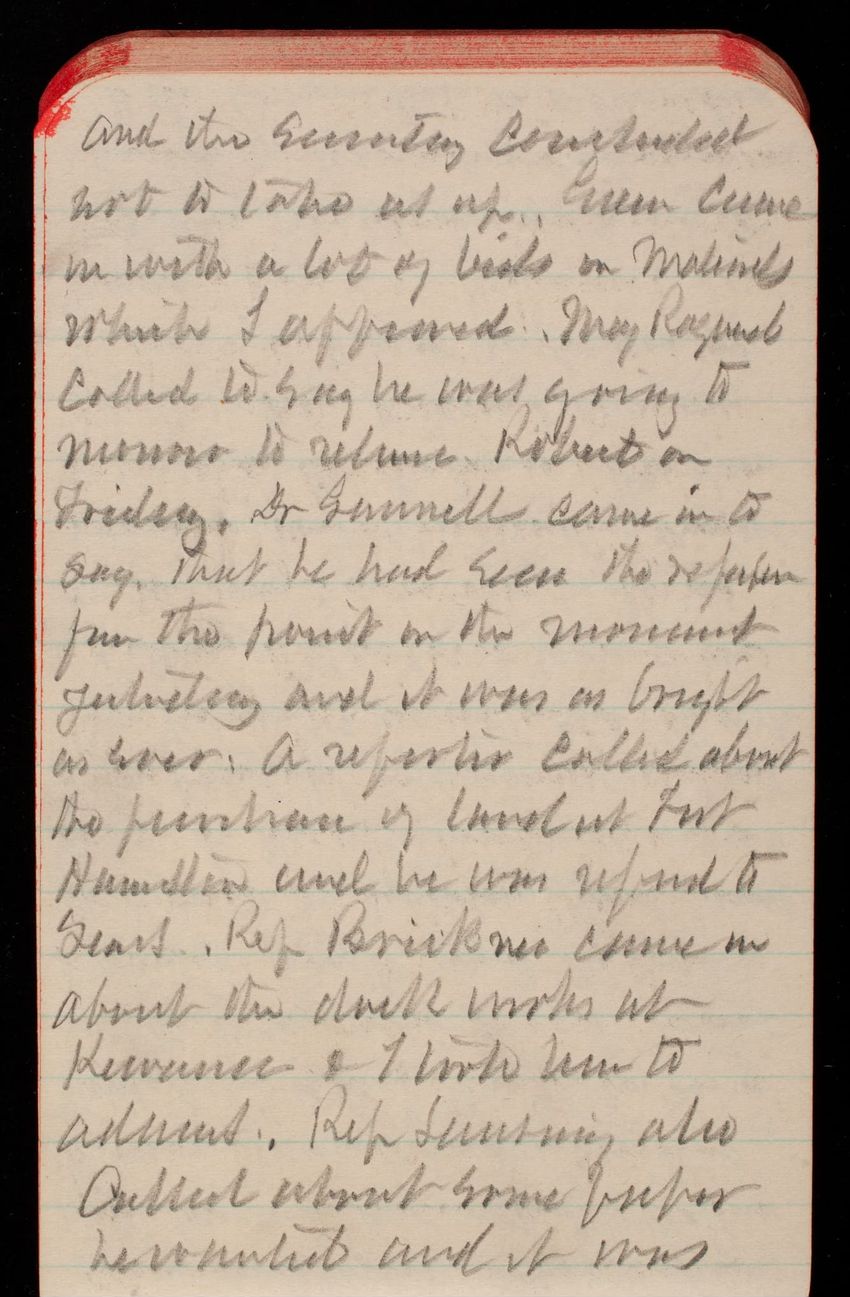 and the Secretary concluded
not to take it up. Green came
in with a lot of bids on Materials
which I approved. Maj Raymond
Called to say he was going to
morrow to relieve Robert on
Friday. Dr Gunnell came in to
say. that he had seen the reflection
from the point on the monument
yesterday and it was as bright
as ever. A reporter called about
the purchase of land at Fort
Hamilton and he was referred to
Sears. Rep Brickner came in
about the dock works at
Kewaunee & I took him to
Adams. Rep Lansing also
Called about some paper
he wanted and it was